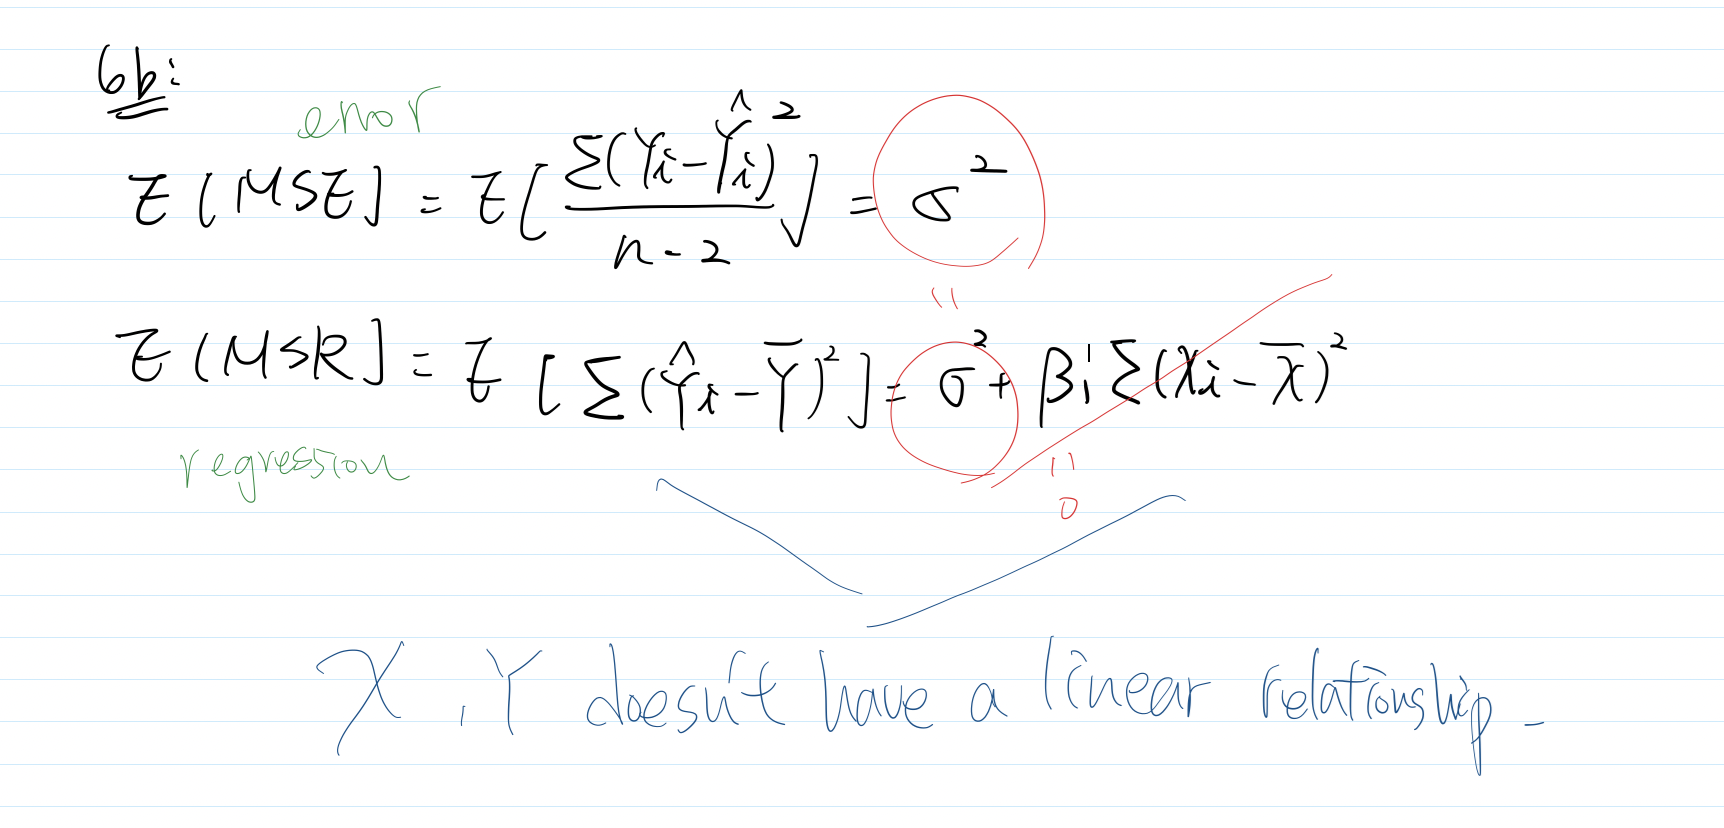 6b:
error
E[MSE] = E[Σ(Yi-Ŷi)² / n-2] = σ²
"
E[MSR] = E[Σ(Ŷi-Ȳ)²] = σ² + β₁' Σ(Xi-X̄)²
regression
"
0
X, Y doesn't have a linear relationship.